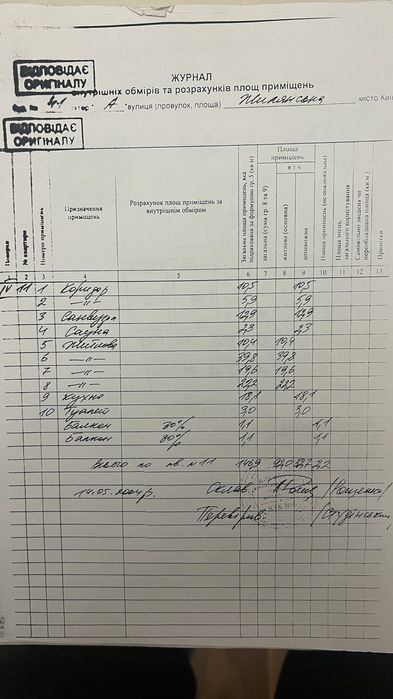 ВІДПОВІДАЄ
ОРИГІНАЛУ
ЖУРНАЛ
внутрішніх обмірів та розрахунків площ приміщень
А вулиця (провулок, площа) Жилянська місто Киї
ВІДПОВІДАЄ
ОРИГІНАЛУ
№ квартири
Номери приміщень
Призначення приміщень
Розрахунок площ приміщень за внутрішнім обміром
Загальна площа приміщень, яка підрахована за формулою гр. 5 (кв.м)
Площа приміщень
в т.ч.
загальна (сума гр. 8 та 9)
житлова (основна)
допоміжна
Площа місць загального користування
Самовільно зведена чи переобладнана площа (кв м)
Примітки
1 2 3 4 5 6 7 8 9 10 11 12 13
IV 11 1 Коридор 10,5 10,5
2 —"— 5,9 5,9
3 Санвузол 12,9 12,9
4 Сауна 2,3 2,3
5 Житлова 10,4 10,4
6 —"— 39,8 39,8
7 —"— 19,6 19,6
8 —"— 22,2 22,2
9 Кухня 18,1 18,1
10 Туалет 3,0 3,0
Балкон 30% 1,1 1,1
Балкон 30% 1,1 1,1
Всього по кв. №11 146,9 92,0 52,7 2,2
14.05.2004р. Склав /Рощенко/
Перевірив